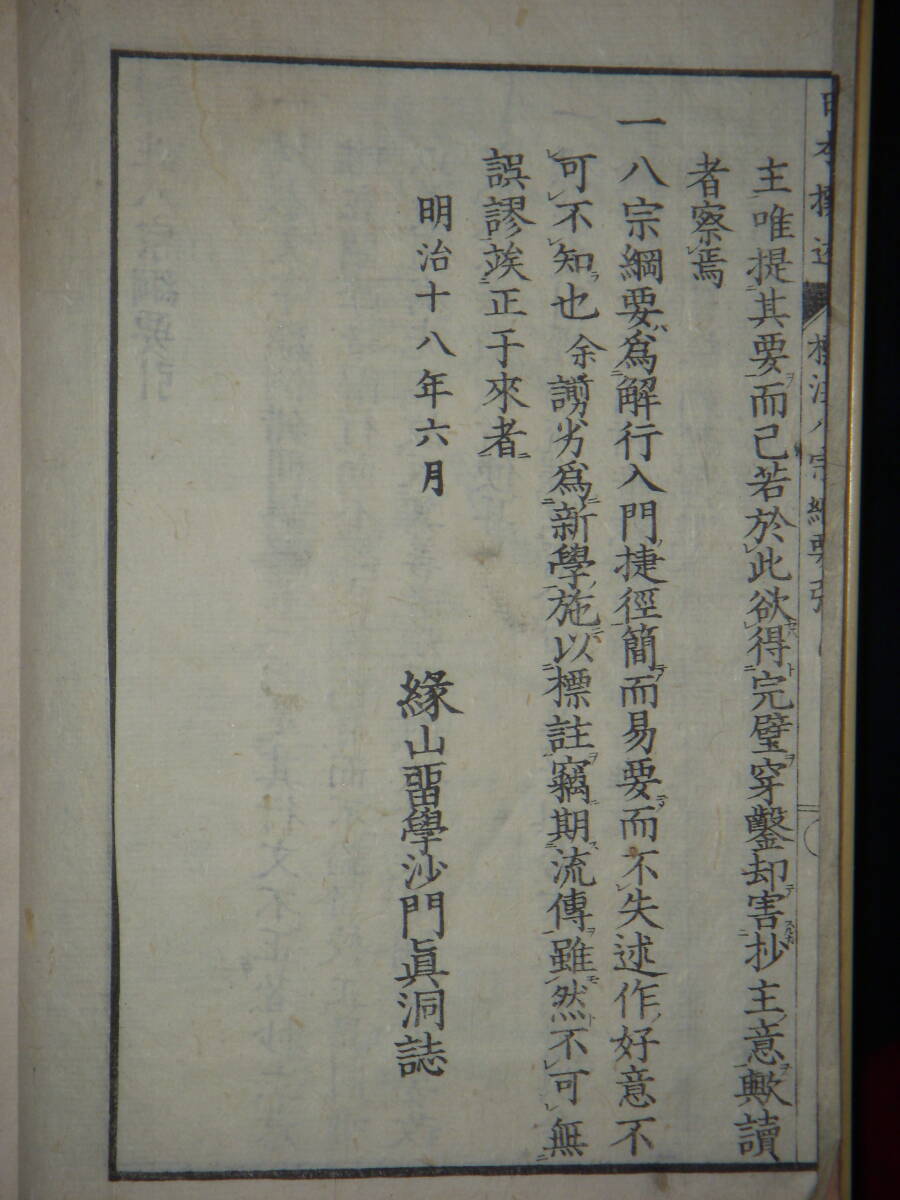 標注八宗綱要引
主唯提其要而已若於此欲得完璧穿鑿却害抄主意歟讀
者察焉
一八宗綱要爲解行入門捷徑簡而易要而不失述作好意不
可不知也余謭劣爲新學施以標註竊期流傳雖然不可無
誤謬竢正于來者
明治十八年六月
緣山畱學沙門眞洞誌